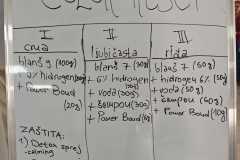 I II III
crna ljubičasta riđa
blanš 9 (100g) blanš 7 (30g) blanš 7 (60g)
hidrogen + 6% hidrogen + hidrogen 6% (50g)
+ Power Bond + voda (30g) + voda (50g)
(20g) + šampon (30g) + šampon (60g)
+ Power Bond + Power Bond (10g)
ZAŠTITA:
1) Detox sprej
- calming